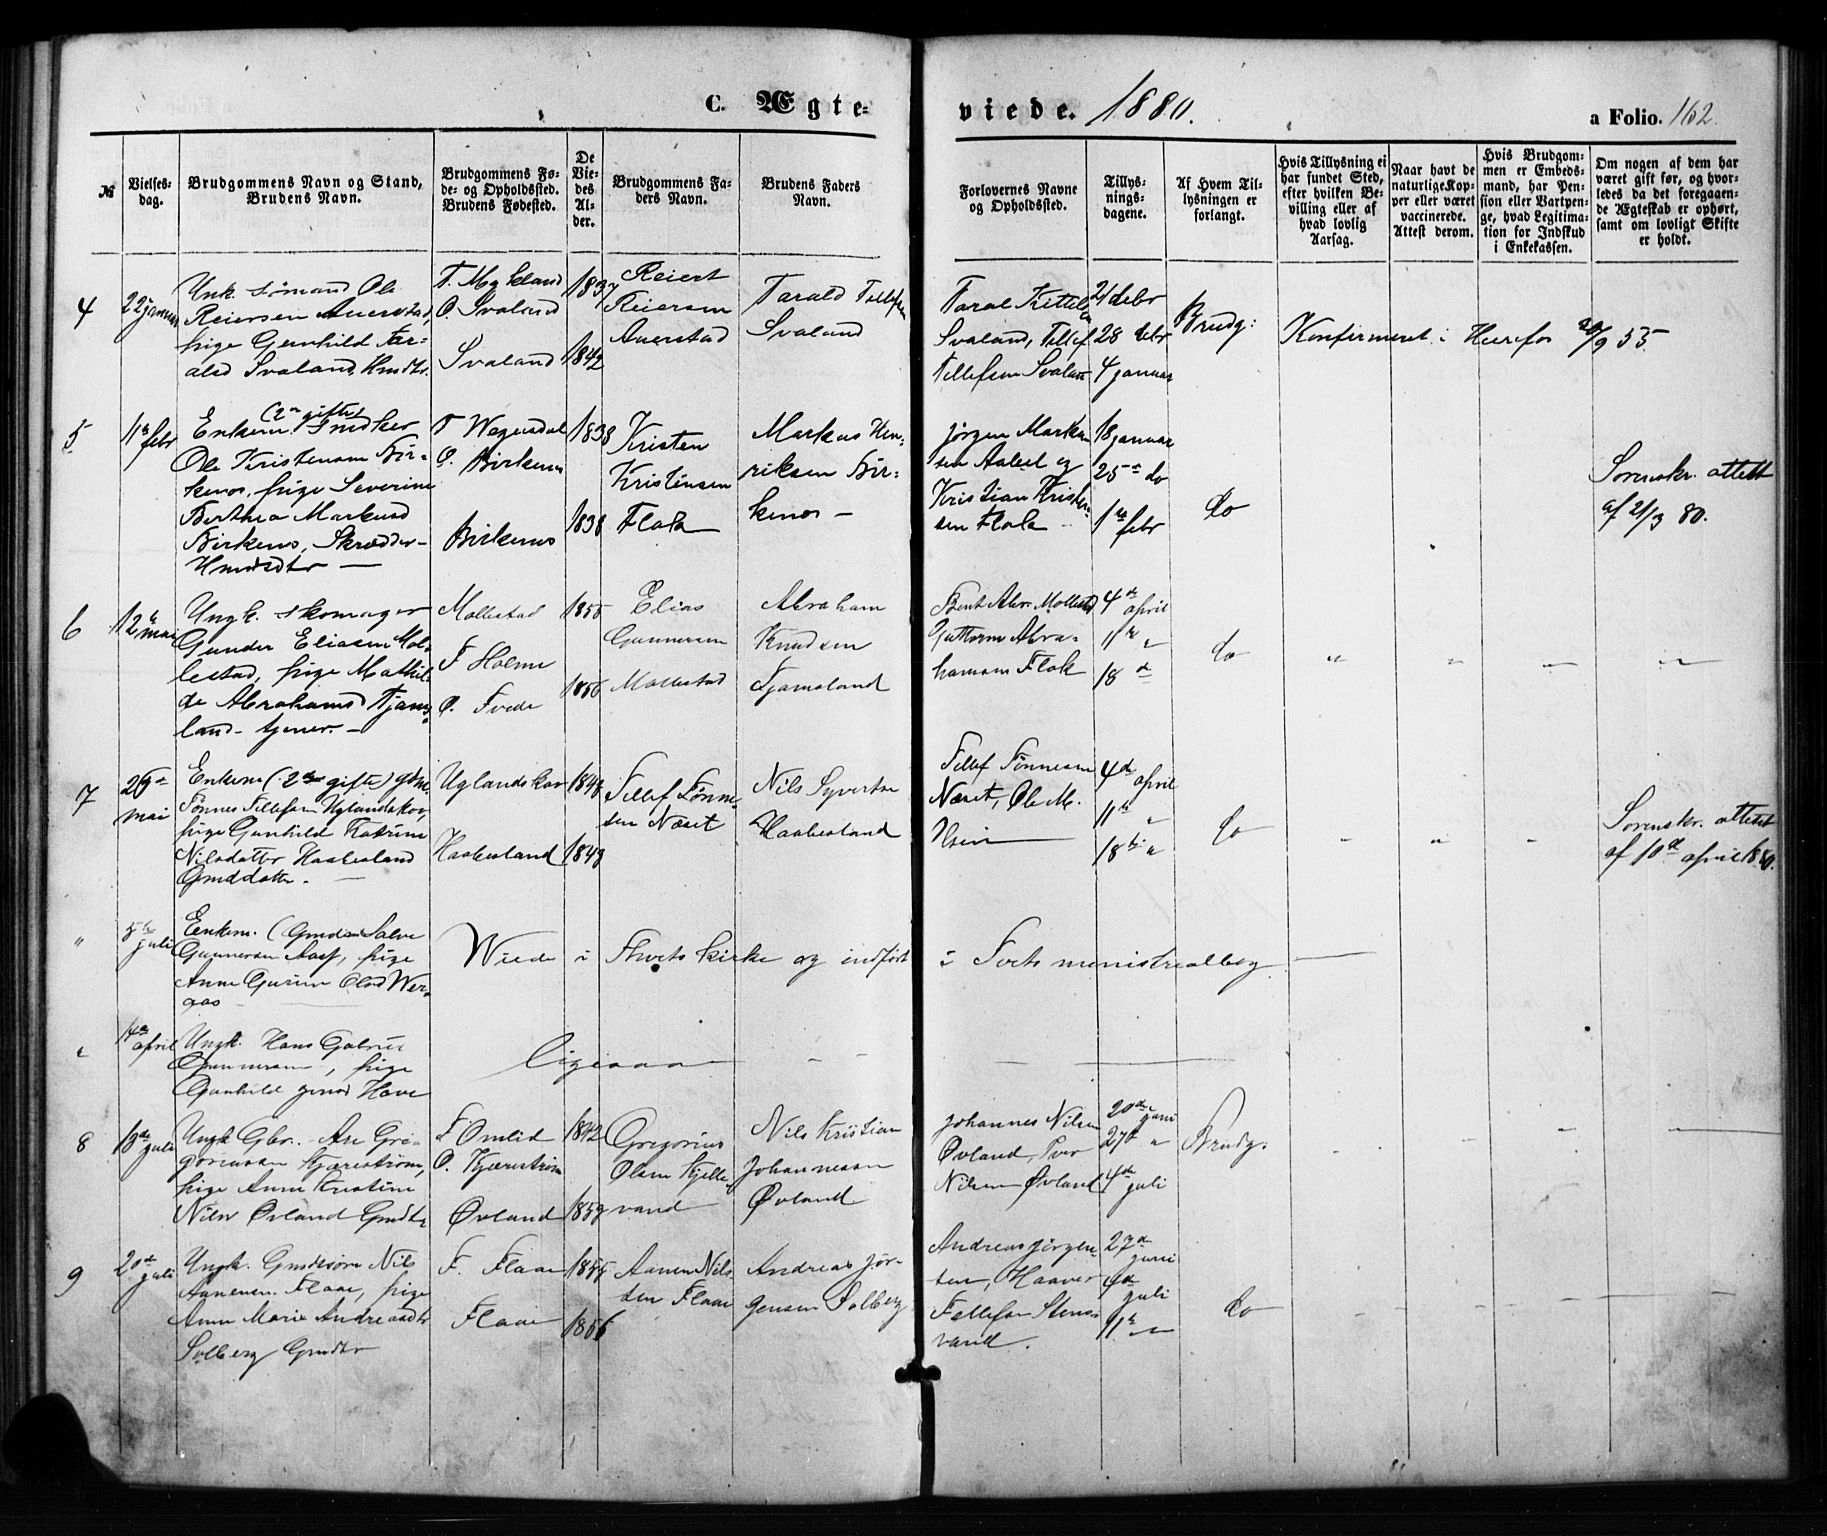 C. Ægte-
viede. 1880.
a Folio. 162.
№
Vielses-
dag.
Brudgommens Navn og Stand,
Brudens Navn.
Brudgommens Fø-
de- og Opholdssted.
Brudens Fødested.
De
Vie-
des
Al-
der.
Brudgommens Fa-
ders Navn.
Brudens Faders
Navn.
Forlovernes Navne
og Opholdssted.
Tillys-
nings-
dagene.
Af Hvem Til-
lysningen er
forlangt.
Hvis Tillysning ei
har fundet Sted,
efter hvilken Be-
villing eller af
hvad lovlig
Aarsag.
Naar havt de
naturlige Kop-
per eller været
vaccinerede.
Attest derom.
Hvis Brudgom-
men er Embeds-
mand, har Pen-
sion eller Vartpen-
ge, hvad Legitima-
tion for Indskud
i Enkekassen.
Om nogen af dem har
været gift før, og hvor-
ledes da det foregaaen-
de Ægteskab er ophørt,
samt om lovligt Skifte
er holdt.
4
22 januar
Unk. Sømand Ole
Reiersen Auerstad,
pige Gunhild Tar-
alsd Svaland, Hmdtr.
F. Mykland
O. Svaland
Svaland
1837
1842
Reiert
Reiersen
Auerstad
Tarald Tellefsen
Svaland
Taral Kittels
Svaland, Tellef
Tellefsen Svaland
21 debr
28 debr
4 januar
Brudg:
Konfirmeret i Herefos 30/9 55.
5
11te febr
(2n gifte)
Enkem. Smdker
Ole Kristensen Bir-
kenes, pige Severine
Berthea Markusd
Birkenes, Skrædder-
Hmdsdtr —
F Wegusdal
O. Birkenes
Birkenes
1838
1838
Kristen
Kristensen
Flak
Markus Hen-
riksen Bir-
kenes —
Jørgen Marku-
sen Aabel og
Kristian Kristen-
sen Flak —
18 januar
25de do
1te febr
do
Sorenskr. attest
af 21/3 80.
6
12te mai
Ungk. skomager
Gunder Eliasen Mol-
lestad, pige Mathil-
de Abrahamsd Tjams-
land- tjener. —
Mollestad
F Holme
O. Tvede
1855
1856
Elias
Gunnersen
Mollestad
Abraham
Knudsen
Tjamsland
Bent Abr. Mollestad
Guttorm Abra-
hamsen Flak
4de april
11te "
18de
do
" " — —
7
26de
mai
Enkem (2den gifte) gdm
Tønnes Tellefsen Uglandskov,
pige Gunhild Katrine
Nilsdatter Haabesland
Gmddatter. —
Uglandskov
Haabesland
1848
1849
Tellef Tønne-
sen Næset
Nils Syvertsen
Haabesland
Tellef Tønnesen
Næset, Ole M.
4de april
11te "
18de "
do
" " "
Sorenskr. attest
af 10de april 1880.
"
5te juli
Enkem. Gmdmand Salve
Gunnersen Aas, pige
Anne Gurine Olsd Wer-
aas
Viede i Thvets kirke og indført i Tvets ministrealbog —
"
14de april
Ungk. Hans Gabriel
Gunnersen, pige
Gunhild Hove
ligesaa — — —
8
13de juli
Ungk Gbr. Are Gre-
goriussen Kjærestrøm,
pige Anne Kristine
Nilsd Øvland Gmdtr
F Omlid
O. Kjærestrøm
Øvland
1842
1859
Gregorius
Olsen Kjelle-
vand
Nils Kristian
Johannesen
Øvland
Johannes Nilsen
Øvland, Peer
Nilsen Øvland
20de juni
27de "
4de juli
Brudg:
9
20de juli
Ungk. Gmdssøn Nils
Aanensen Flaae, pige
Anne Marie Andreasdtr
Solberg Gmdtr
F. Flaae
Flaae
1855
1856
Aanen Nils-
sen Flaae
Andreas Jør-
gensen Solberg
Andreas Jørgen-
sen, Haaver
Tellefsen Stens-
vand.
27de juni
4de juli
11te "
do